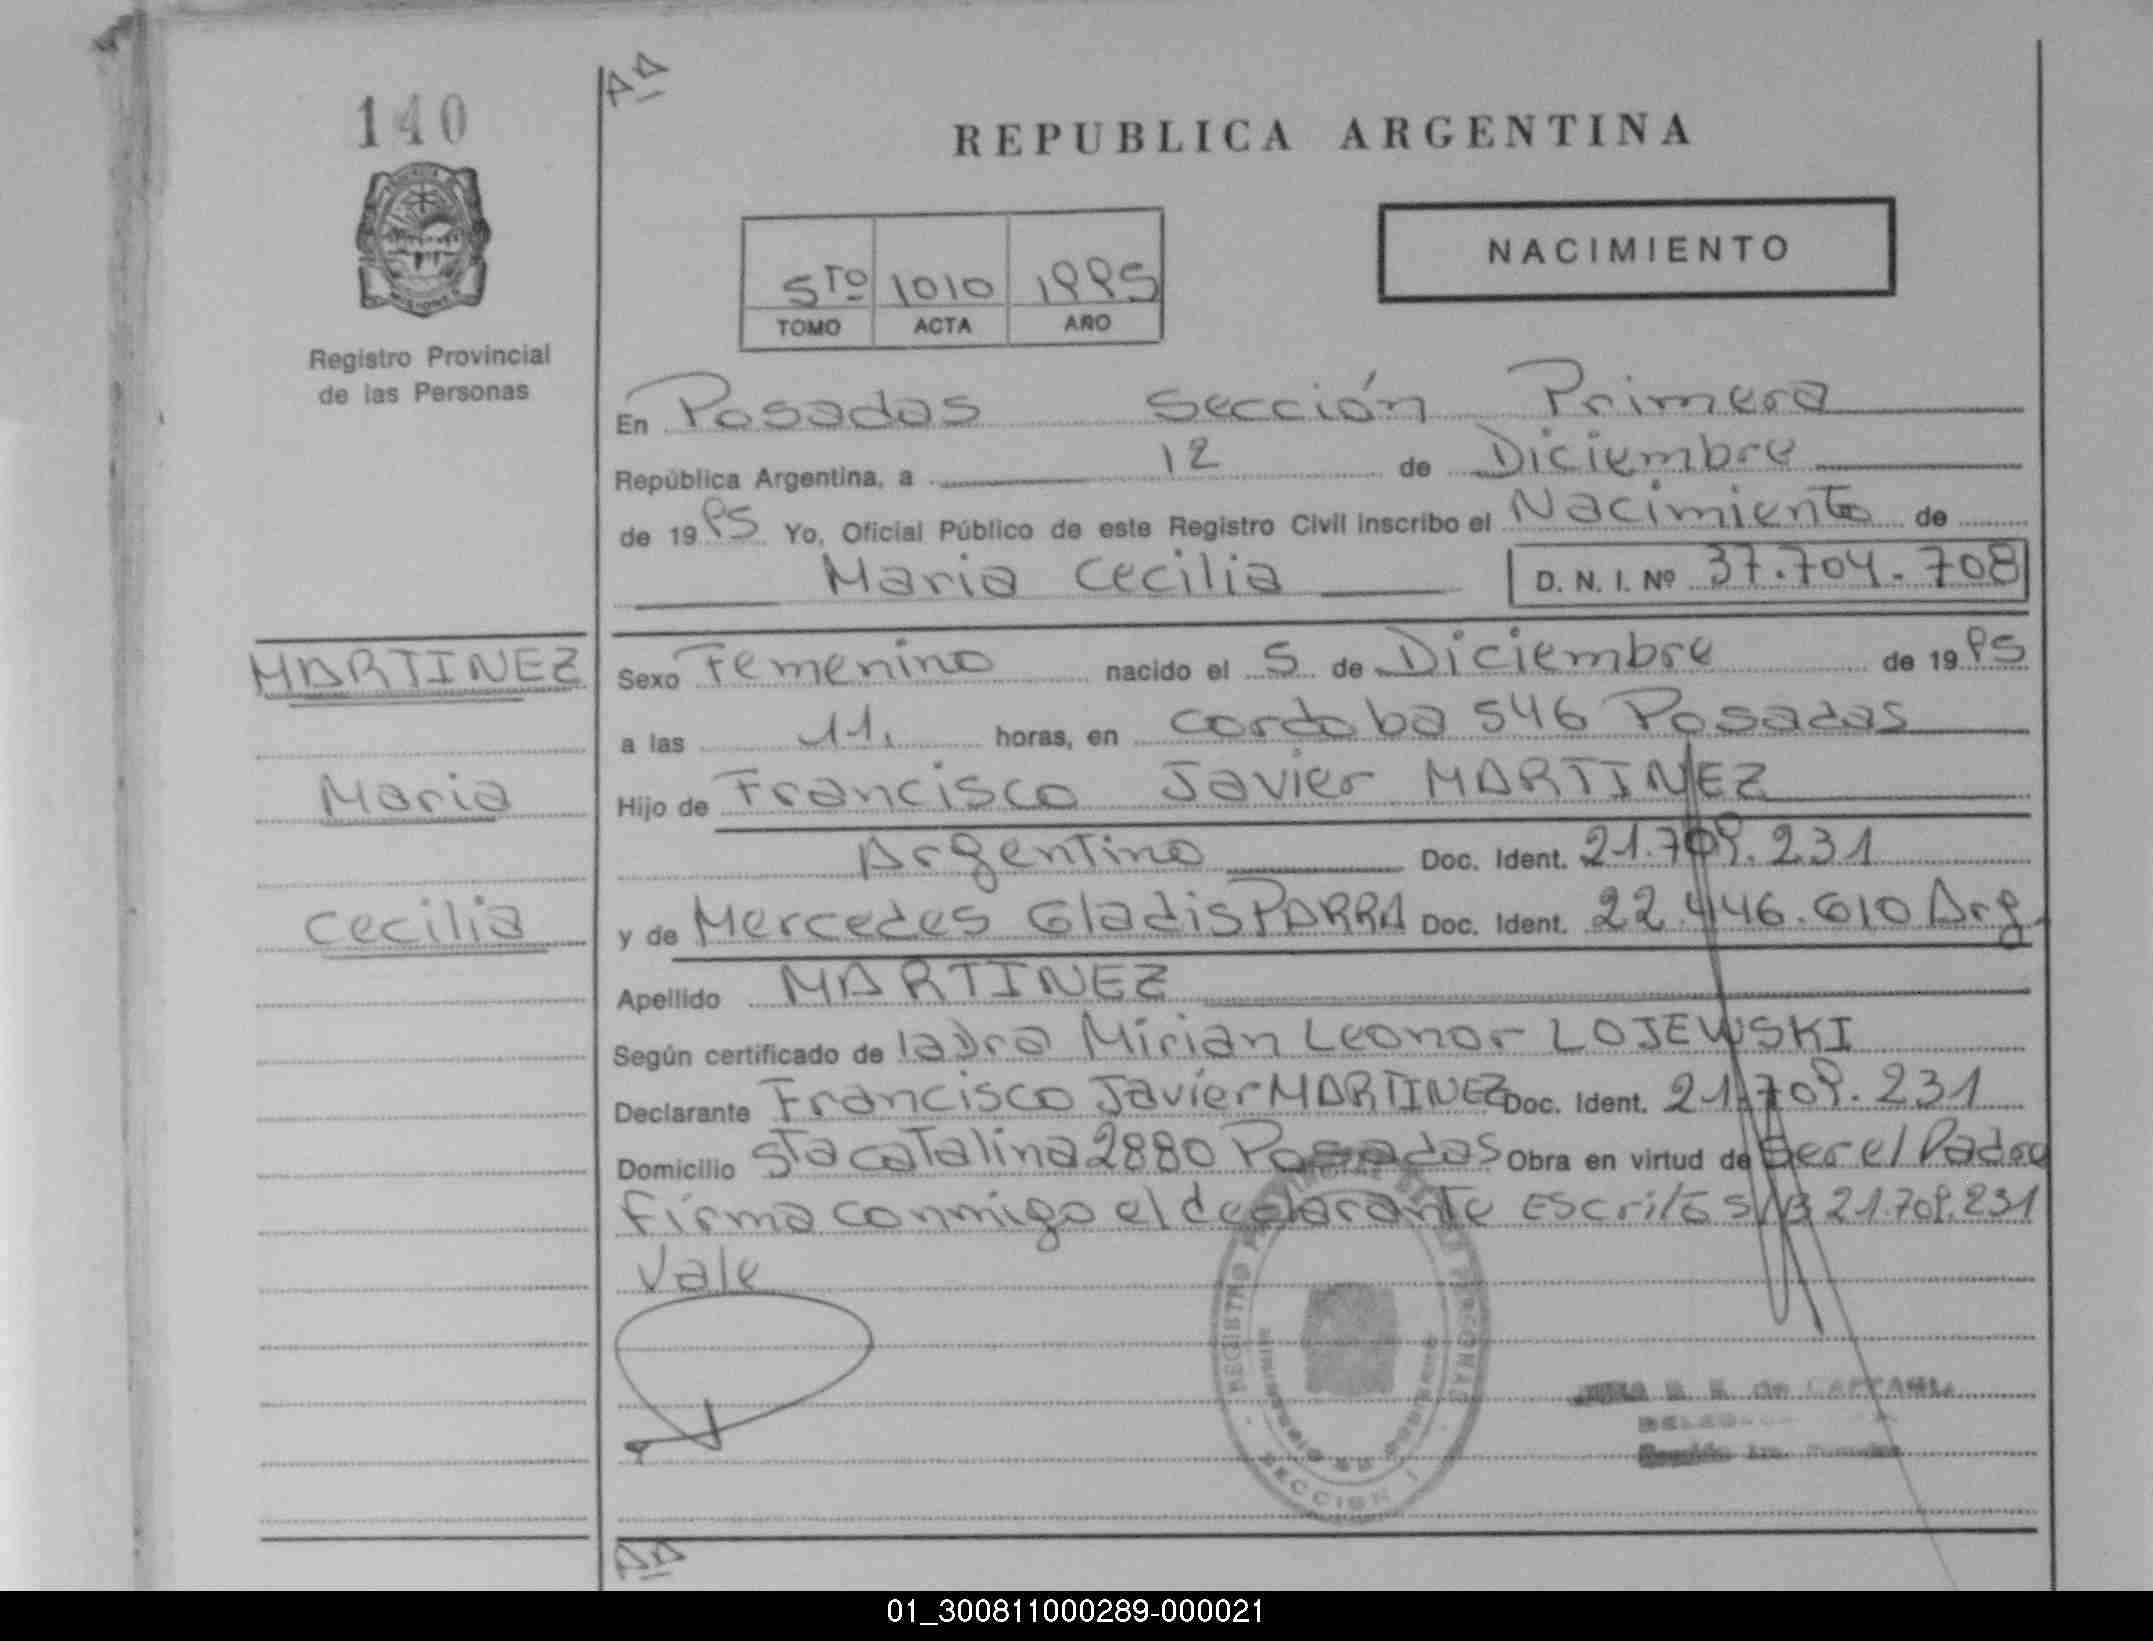 140
AA
REPUBLICA ARGENTINA
NACIMIENTO
5to 1010 1995
TOMO ACTA AÑO
Registro Provincial
de las Personas
En Posadas Sección Primera
República Argentina, a 12 de Diciembre
de 1995 Yo, Oficial Público de este Registro Civil inscribo el Nacimiento de
Maria Cecilia D. N. I. Nº 37.704.708
MARTINEZ
Maria
Cecilia
Sexo Femenino nacido el 5 de Diciembre de 1995
a las 11. horas, en Cordoba 546 Posadas
Hijo de Francisco Javier MARTINEZ
Argentino Doc. Ident. 21.709.231
y de Mercedes Gladis PARRA Doc. Ident. 22.446.610 Arg.
Apellido MARTINEZ
Según certificado de la Dra Mirian Leonor LOJEWSKI
Declarante Francisco Javier MARTINEZ Doc. Ident. 21.709.231
Domicilio Sta Catalina 2880 Posadas Obra en virtud de Ser el Padre
Firma conmigo el declarante Escri/ S/B 21.709.231
Vale
REGISTRO PROVINCIAL DE LAS PERSONAS
SECCION 1
de
AA
01_300811000289-000021